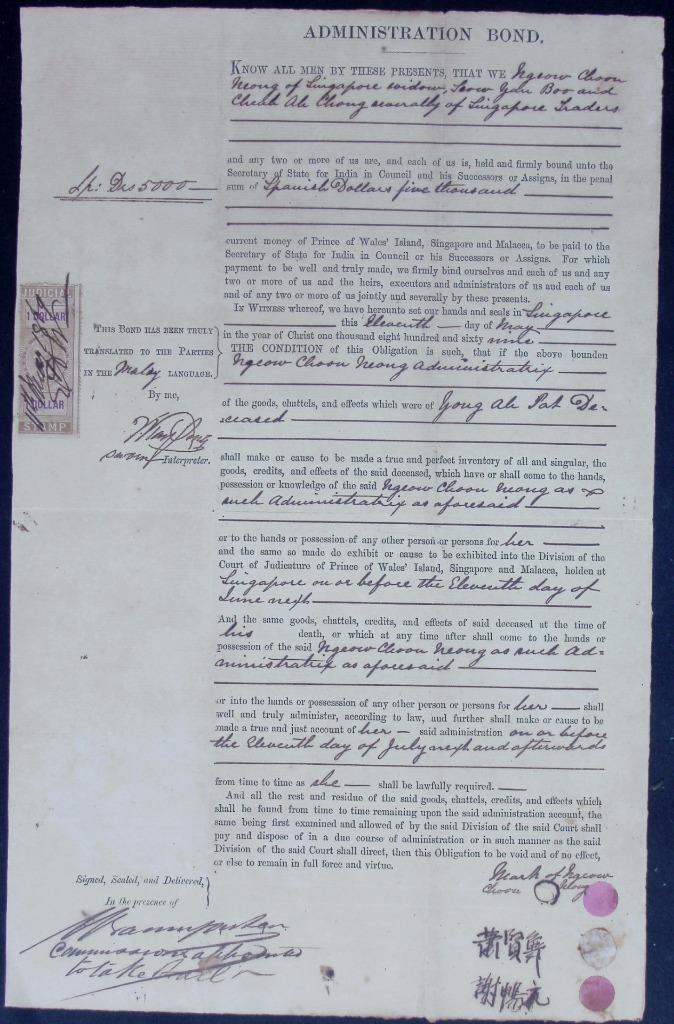 ADMINISTRATION BOND.
KNOW ALL MEN BY THESE PRESENTS, THAT WE Ngeow Choon
Neong of Singapore widow, Seow Yan Boo and
Cheah Ah Chong severally of Singapore Traders
and any two or more of us are, and each of us is, held and firmly bound unto the
Secretary of State for India in Council and his Successors or Assigns, in the penal
Sp: Drs 5000
sum of Spanish Dollars five thousand
current money of Prince of Wales' Island, Singapore and Malacca, to be paid to the
Secretary of State for India in Council or his Successors or Assigns. For which
payment to be well and truly made, we firmly bind ourselves and each of us and any
two or more of us and the heirs, executors and administrators of us and each of us
and of any two or more of us jointly and severally by these presents.
In Witness whereof, we have hereunto set our hands and seals in Singapore
this Eleventh day of May
in the year of Christ one thousand eight hundred and sixty nine
THE CONDITION of this Obligation is such, that if the above bounden
Ngeow Choon Neong Administratrix
JUDICIAL
1 DOLLAR
1 DOLLAR
STAMP
THIS BOND HAS BEEN TRULY
TRANSLATED TO THE PARTIES
IN THE Malay LANGUAGE.
By me,
sworn Interpreter.
of the goods, chattels, and effects which were of Yong Ah Pat De-
ceased
shall make or cause to be made a true and perfect inventory of all and singular, the
goods, credits, and effects of the said deceased, which have or shall come to the hands,
possession or knowledge of the said Ngeow Choon Neong as
such Administratrix as aforesaid
or to the hands or possession of any other person or persons for her
and the same so made do exhibit or cause to be exhibited into the Division of the
Court of Judicature of Prince of Wales' Island, Singapore and Malacca, holden at
Singapore on or before the Eleventh day of
June next
And the same goods, chattels, credits, and effects of said deceased at the time of
his death, or which at any time after shall come to the hands or
possession of the said Ngeow Choon Neong as such Ad=
ministratrix as aforesaid
or into the hands or possesssion of any other person or persons for her shall
well and truly administer, according to law, and further shall make or cause to be
made a true and just account of her said administration on or before
the Eleventh day of July next and afterwards
from time to time as she shall be lawfully required.
And all the rest and residue of the said goods, chattels, credits, and effects which
shall be found from time to time remaining upon the said administration account, the
same being first examined and allowed of by the said Division of the said Court shall
pay and dispose of in a due course of administration or in such manner as the said
Division of the said Court shall direct, then this Obligation to be void and of no effect,
or else to remain in full force and virtue.
Signed, Sealed, and Delivered,
In the presence of
Commissioner appointed
to take
Mark of Ngeow
Choon Neong
蕭賢舞
謝暢元